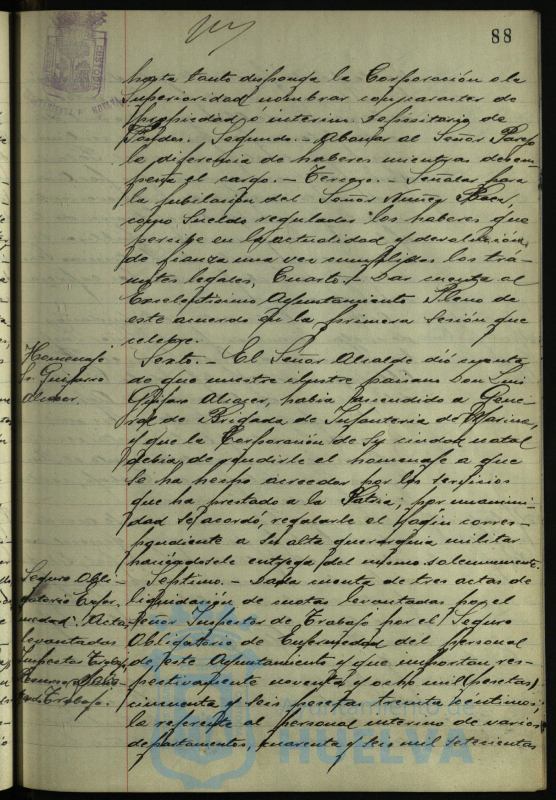 88
hasta tanto disponga la Corporación o la
Superioridad nombrar con caracter de
propiedad o interino Depositario de
Fondos. Segundo.- Abonar al Señor
la diferencia de haberes mientras desem-
peñe el cargo.- Tercero.- Señalar para
la jubilación del Señor Nuñez Baez,
como sueldo regulador los haberes que
percibe en la actualidad y devolución
de fianza una vez cumplidos los trá-
mites legales, Cuarto.- Dar cuenta al
Excelentisimo Ayuntamiento Pleno de
este acuerdo en la primera sesión que
celebre.
Homenaje
Sr. Guijarro
Alcocer.
Sexto.- El Señor Alcalde dió cuenta
de que nuestro ilustre paisano Don Luis
Guijarro Alcocer, había ascendido a Gene-
ral de Brigada de Infanteria de Marina,
y que la Corporación de su ciudad natal
debia de rendirle el homenaje a que
se ha hecho acreedor por los servicios
que ha prestado a la Patria; por unanimi-
dad se acordó, regalarle el fagín corres-
pondiente a su alta gerarquia militar
haciéndosele entrega del mismo solemnemente.
Seguro Obli-
gatorio Enfer-
medad. Actas
levantadas
Inspector Trabajo
de Trabajo.
Septimo.- Dada cuenta de tres actas de
liquidación de cuotas levantadas por el
Señor Inspector de Trabajo por el Seguro
Obligatorio de Enfermedad del personal
de este Ayuntamiento y que importan res-
pectivamente noventa y ocho mil (pesetas)
cincuenta y seis pesetas treinta céntimos;
la referente al personal interino de varios
departamentos, cuarenta y seis mil setecientas
AYUNTAMIENTO DE
HUELVA